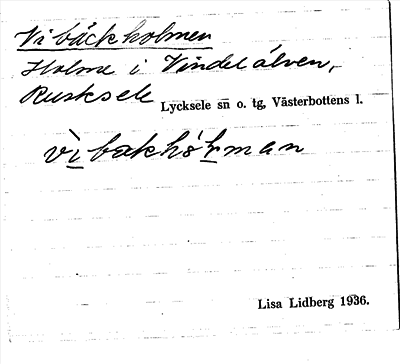 Vibäckholmen
Holme i Vindelälven,
Rusksele Lycksele sn o. tg, Västerbottens l.
Lisa Lidberg 1936.